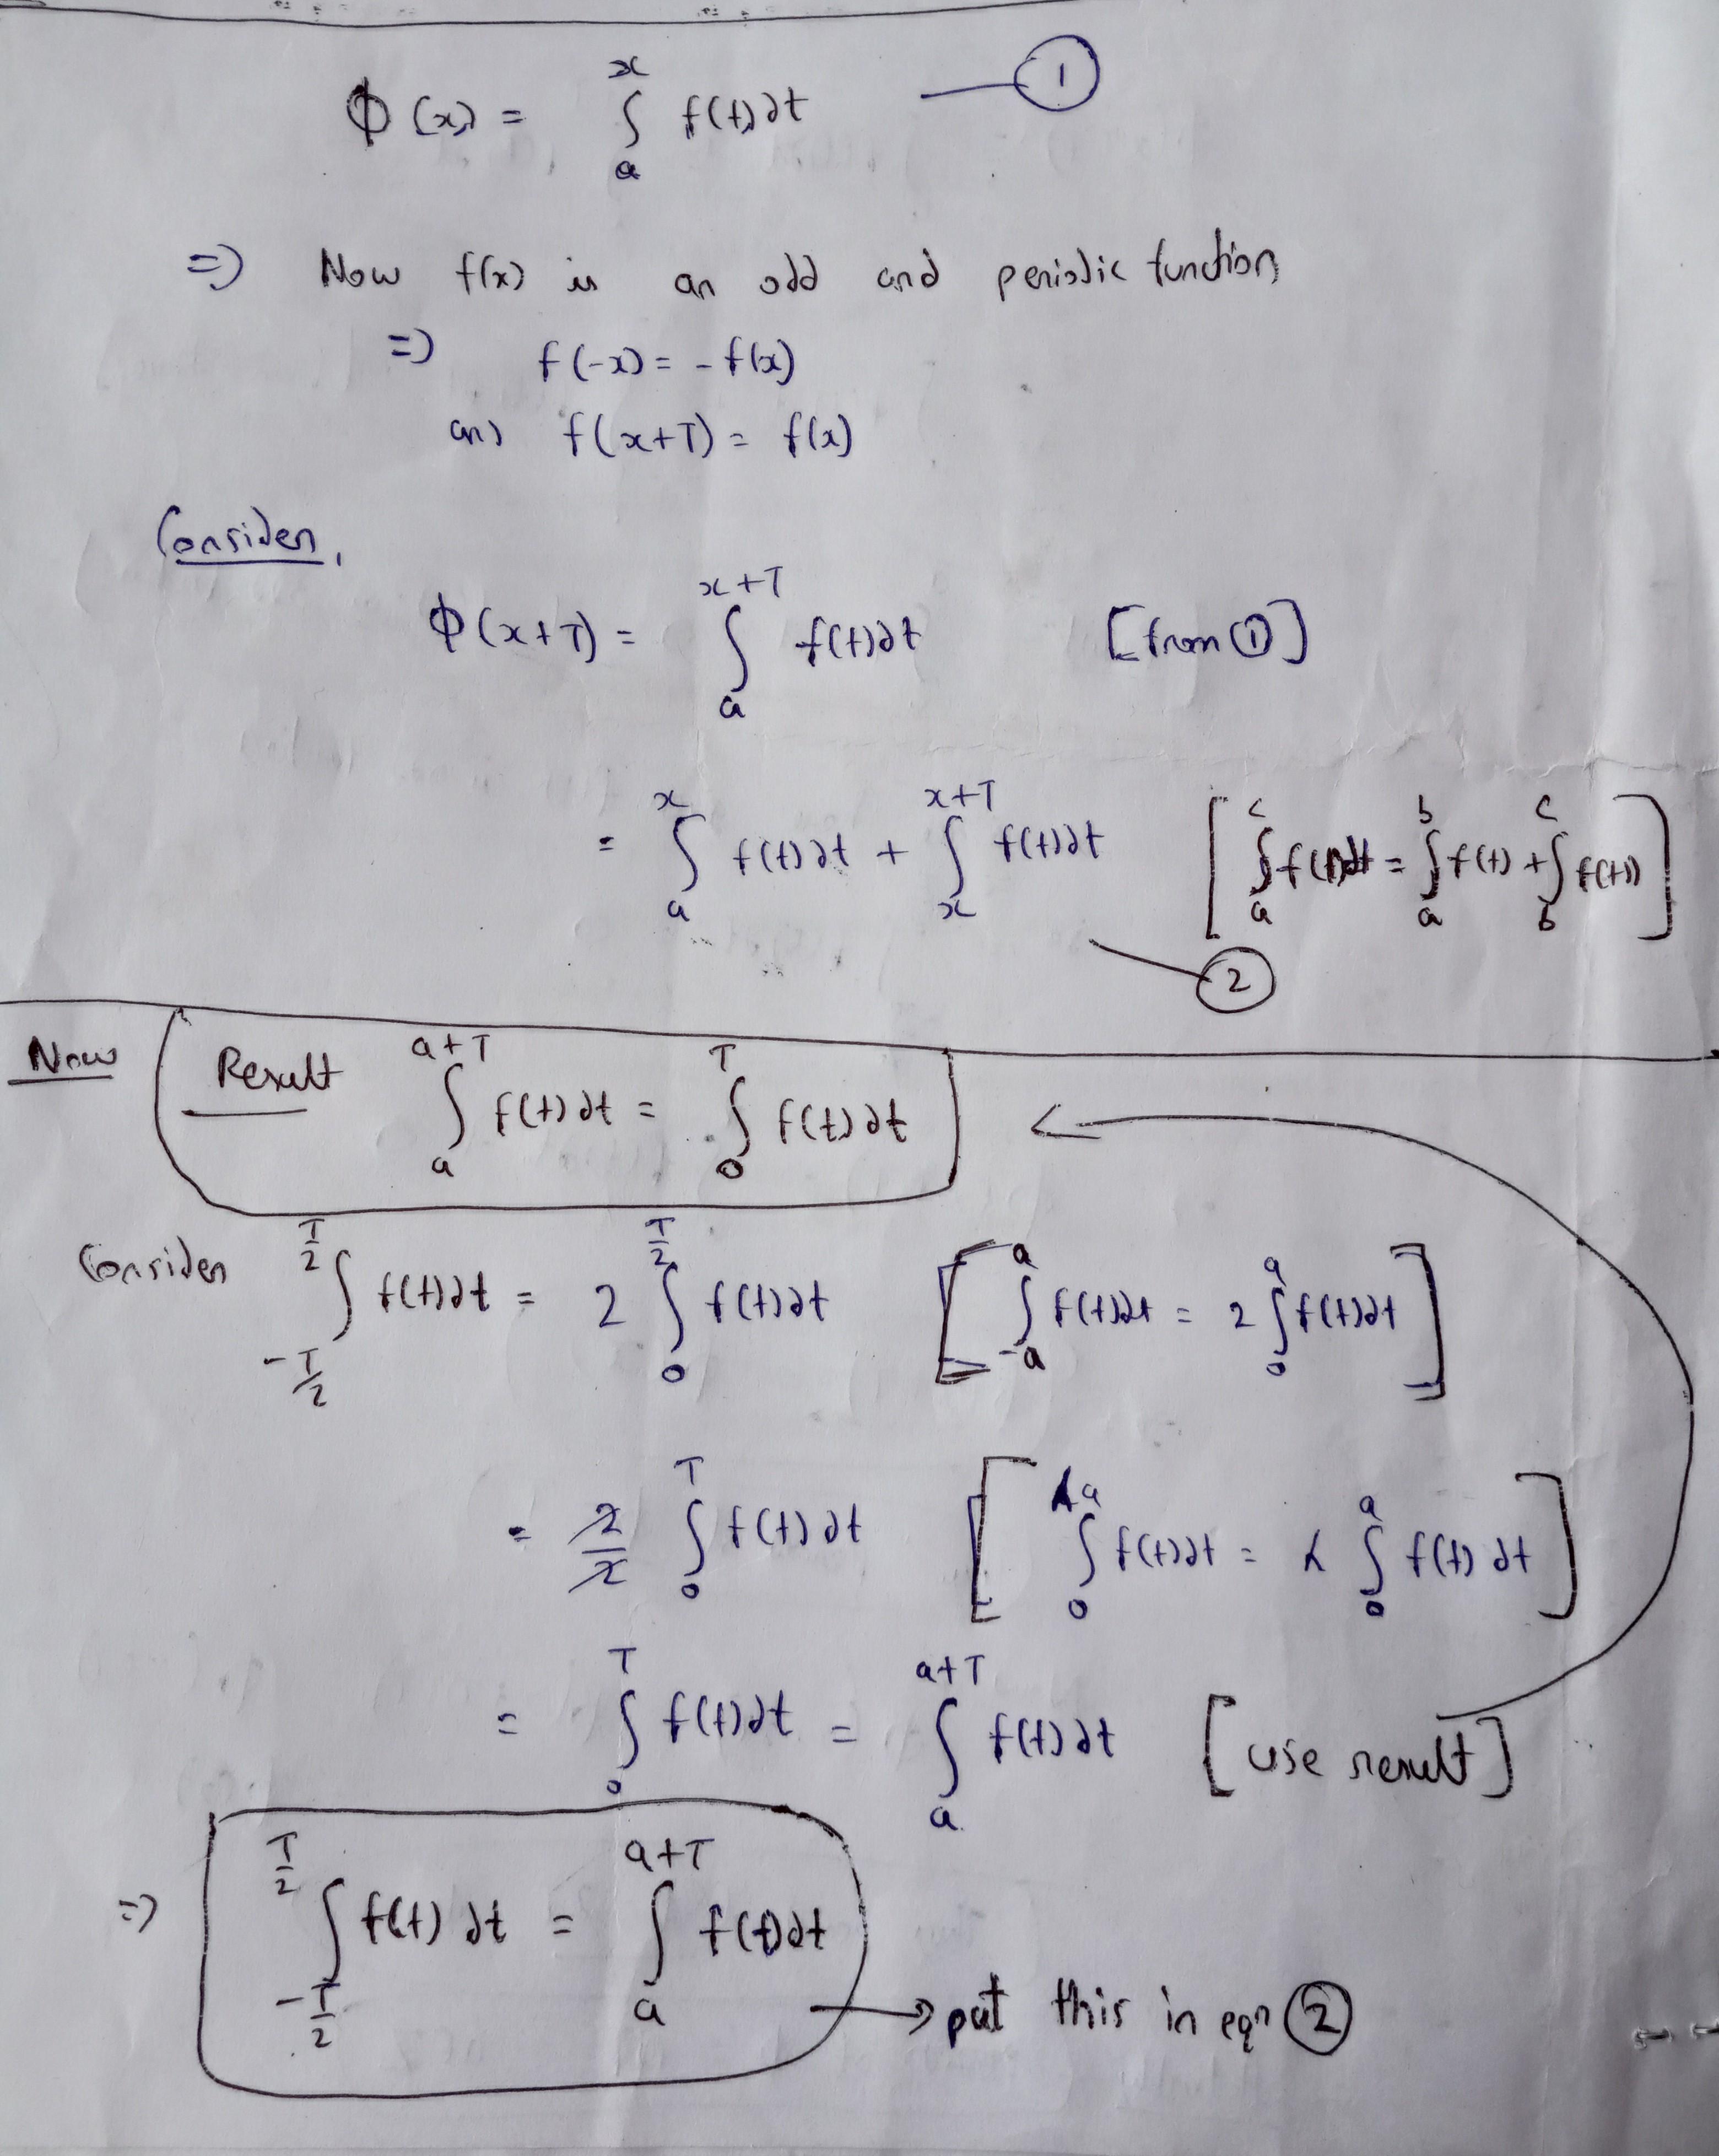 Φ(x) = ∫_a^x f(t)dt — ①
=) Now f(x) is an odd and periodic function
=) f(-x) = -f(x)
and f(x+T) = f(x)
Consider,
Φ(x+T) = ∫_a^{x+T} f(t)dt [from ①]
= ∫_a^x f(t)dt + ∫_x^{x+T} f(t)dt [∫_a^c f(t)dt = ∫_a^b f(t) + ∫_b^c f(t)] — ②
Now Result ∫_a^{a+T} f(t)dt = ∫_0^T f(t)dt
Consider ∫_{-T/2}^{T/2} f(t)dt = 2 ∫_0^{T/2} f(t)dt [∫_{-a}^a f(t)dt = 2 ∫_0^a f(t)dt]
= 2/2 ∫_0^T f(t)dt [∫_0^{λa} f(t)dt = λ ∫_0^a f(t)dt]
= ∫_0^T f(t)dt = ∫_a^{a+T} f(t)dt [use result]
=) ∫_{-T/2}^{T/2} f(t)dt = ∫_a^{a+T} f(t)dt → put this in eqn ②